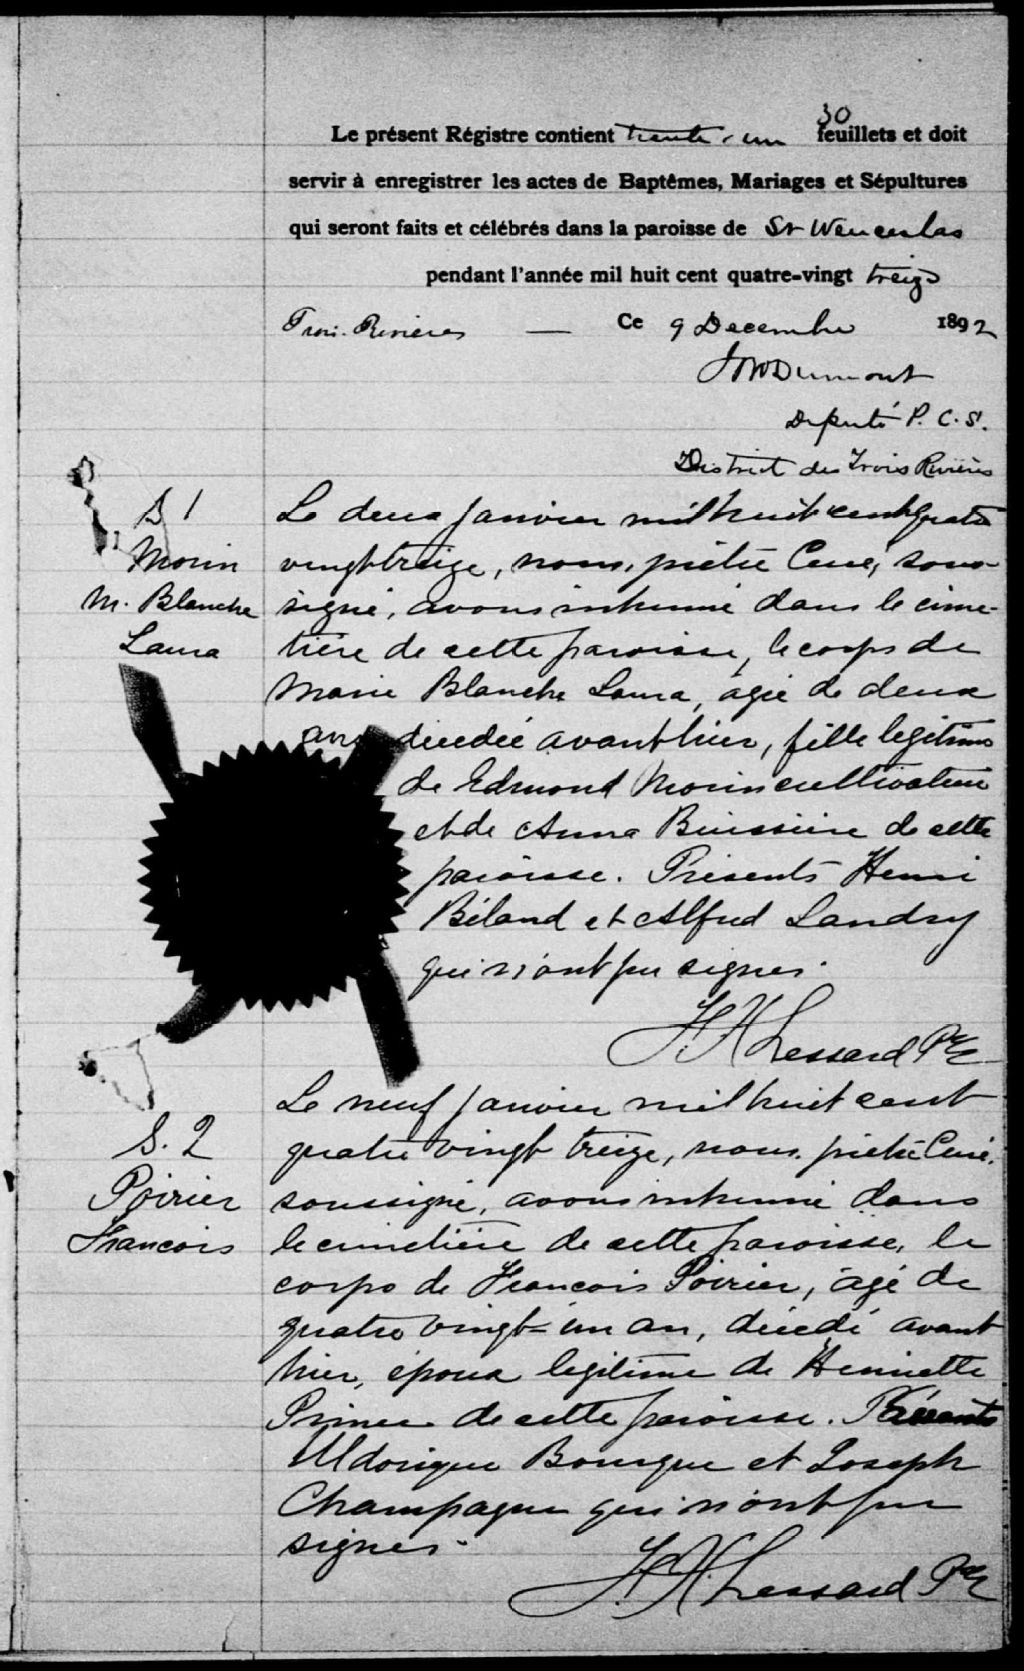 30
Le présent Régistre contient trente-un feuillets et doit
servir à enregistrer les actes de Baptêmes, Mariages et Sépultures
qui seront faits et célébrés dans la paroisse de St Wenceslas
pendant l'année mil huit cent quatre-vingt treize
Trois-Rivières — Ce 9 Decembre 1892
Dumont
Deputé P. C. S.
District des Trois Rivières
S 1
Morin
M. Blanche
Laura
Le deux janvier mil huit cent quatre
vingt treize, nous, prêtre Curé, sous-
signé, avons inhumé dans le cime-
tière de cette paroisse, le corps de
Marie Blanche Laura, âgée de deux
ans décédée avant hier, fille legitime
de Edmond Morin cultivateur
et de Anna Buissière de cette
paroisse. Présents Henri
Béland et Alfred Landry
qui n'ont pu signer.
Lessard Ptre
S. 2
Poirier
Francois
Le neuf janvier mil huit cent
quatre vingt treize, nous, prêtre Curé,
soussigné, avons inhumé dans
le cimetière de cette paroisse, le
corps de Francois Poirier, âgé de
quatre vingt-un an, décédé avant
hier, époux legitime de Henriette
Prince de cette paroisse. Présents
Uldorique Bourque et Joseph
Champagne qui n'ont pu
signer.
Lessard Ptre